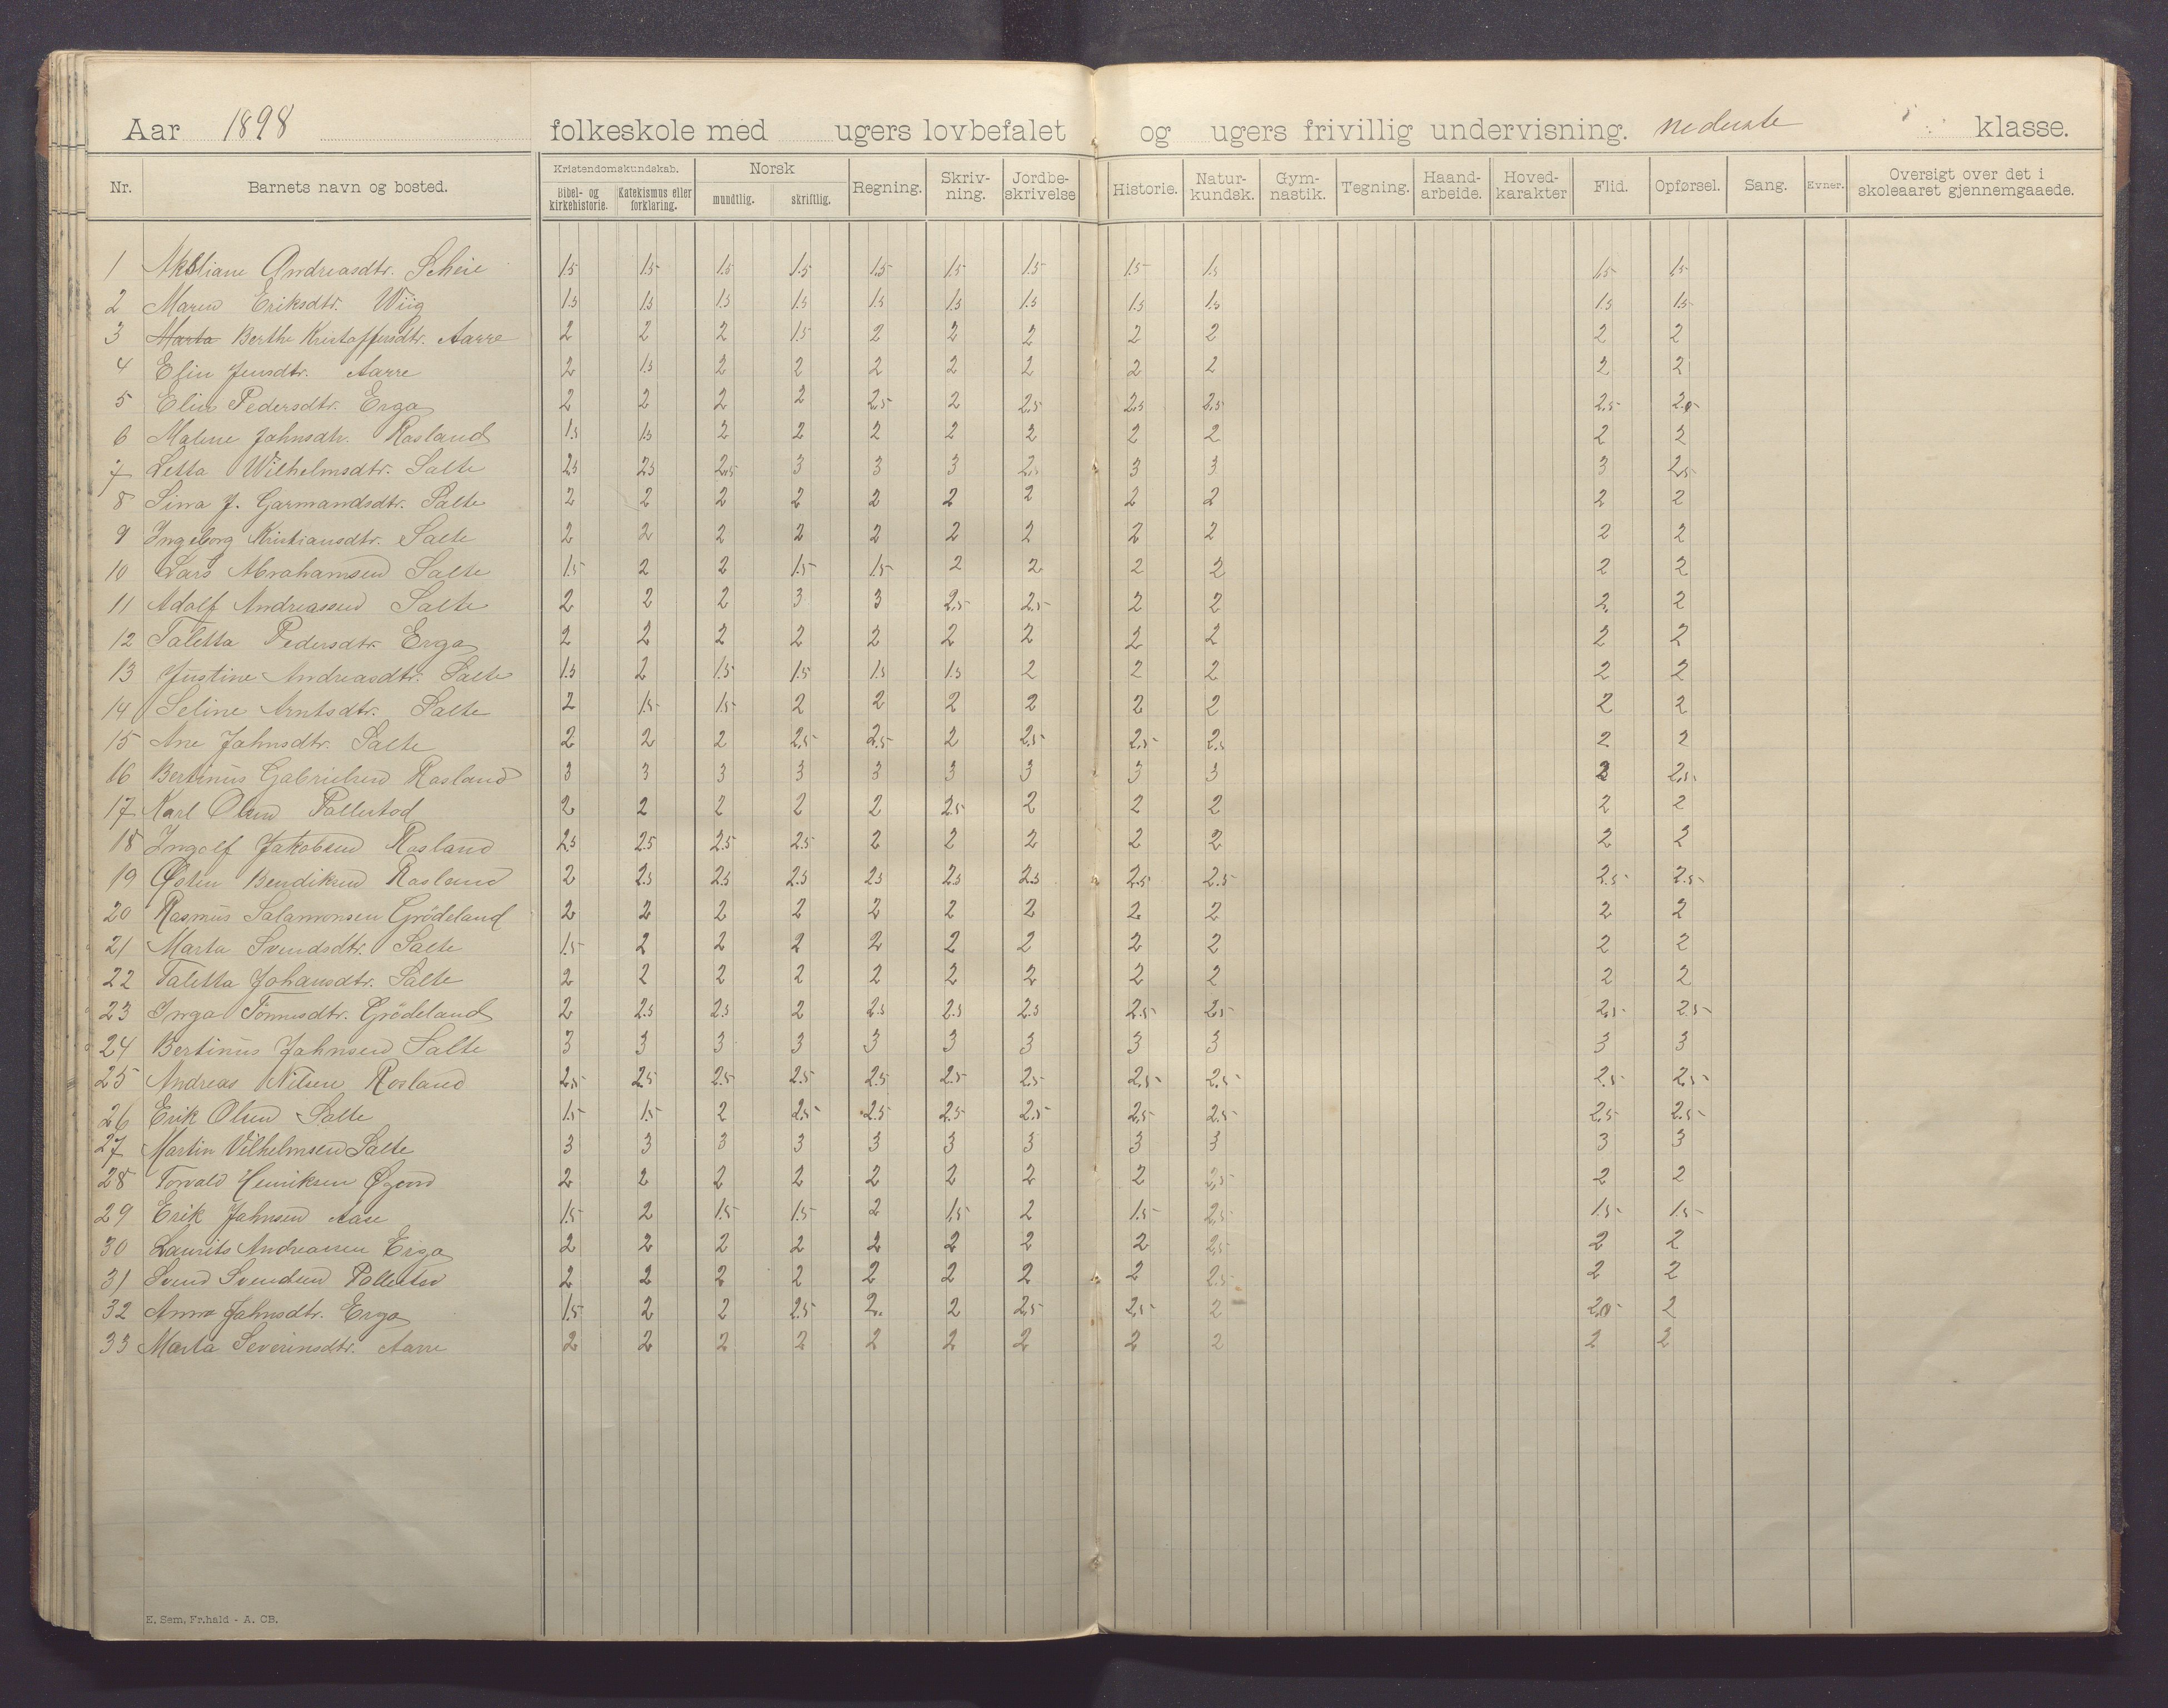 Aar 1898 folkeskole med ugers lovbefalet og ugers frivillig undervisning. nederste klasse.
Nr. Barnets navn og bosted. Kristendomskundskab. Bibel- og kirkehistorie. Katekismus eller forklaring. Norsk mundtlig. skriftlig. Regning. Skriv-ning. Jordbe-skrivelse Historie. Natur-kundsk. Gym-nastik. Tegning. Haand-arbeide. Hoved-karakter Flid. Opførsel. Sang. Evner. Oversigt over det i skoleaaret gjennemgaaede.
1 Andreasdtr. Scheie 1.5 1.5 1.5 1.5 1.5 1.5 1.5 1.5 1.5 1.5 1.5
2 Maren Eriksdtr. Wiig 1.5 1.5 1.5 1.5 1.5 1.5 1.5 1.5 1.5 1.5 1.5
3 Marta Berthe Kristoffersdtr. Aarre 2 2 2 1.5 2 2 2 2 2 2 2
4 Elin Jensdtr. Aarre 2 1.5 2 2 2 2 2 2 2 2 2
5 Pedersdtr. Erga 2 2 2 2 2.5 2 2.5 2.5 2.5 2.5 2.5
6 Malene Jahnsdtr. Rosland 1.5 1.5 2 2 2 2 2 2 2 2 2
7 Letta Wilhelmsdtr. Salte 2.5 2.5 2.5 3 3 3 2.5 3 3 3 2.5
8 Sina J. Garmandsdtr. Salte 2 2 2 2 2 2 2 2 2 2 2
9 Ingeborg Kristiansdtr. Salte 2 2 2 2 2 2 2 2 2 2 2
10 Lars Abrahamsen Salte 1.5 2 2 1.5 1.5 2 2 2 2 2 2
11 Adolf Andreassen Salte 2 2 2 3 3 2.5 2.5 2 2 2 2
12 Taletta Pedersdtr. Erga 2 2 2 2 2 2 2 2 2 2 2
13 Justine Andreasdtr. Salte 1.5 2 1.5 1.5 1.5 1.5 2 2 2 2 2
14 Seline Arntsdtr. Salte 2 1.5 1.5 2 2 2 2 2 2 2 2
15 Ane Jahnsdtr. Salte 2 2 2 2.5 2.5 2 2.5 2.5 2.5 2 2
16 Bertinus Gabrielsen Rosland 3 3 3 3 3 3 3 3 3 2 2.5
17 Karl Olsen 2 2 2 2 2 2.5 2 2 2 2 2
18 Ingolf Jakobsen Rosland 2.5 2.5 2.5 2.5 2 2 2 2 2 2 2
19 Østen Bendiksen Rosland 2 2.5 2.5 2.5 2.5 2.5 2.5 2.5 2.5 2.5 2.5
20 Rasmus Salamonsen Grödeland 2 2 2 2 2 2 2 2 2 2 2
21 Marta Svendsdtr. Salte 1.5 2 2 2 2 2 2 2 2 2 2
22 Taletta Johansdtr. Salte 2 2 2 2 2 2 2 2 2 2 2
23 Inga Tönnesdtr. Grödeland 2 2.5 2.5 2 2.5 2.5 2.5 2.5 2.5 2.5 2.5
24 Bertinus Jahnsen Salte 3 3 3 3 3 3 3 3 3 3 3
25 Andreas Nilsen Rosland 2.5 2.5 2.5 2.5 2.5 2.5 2.5 2.5 2.5 2.5 2.5
26 Erik Olsen Salte 1.5 1.5 2 2.5 2.5 2.5 2.5 2.5 2.5 2.5 2.5
27 Martin Vilhelmsen Salte 3 3 3 3 3 3 3 3 3 3 3
28 Torvald Henriksen 2 2 2 2 2 2 2 2 2.5 2 2
29 Erik Jahnsen Aase 1.5 2 1.5 1.5 2 1.5 2 1.5 2.5 1.5 1.5
30 Laurits Andreassen Erga 2 2 2 2 2 2 2 2 2.5 2 2
31 Svend Svendsen 2 2 2 2 2 2 2 2 2.5 2 2
32 Anna Jahnsdtr. Erga 1.5 2 2 2.5 2. 2 2.5 2.5 2 2.5 2
33 Marta Severinsdtr. Aarre 2 2 2 2 2 2 2 2 2 2 2
E. Sem, Fr.hald - A. CB.